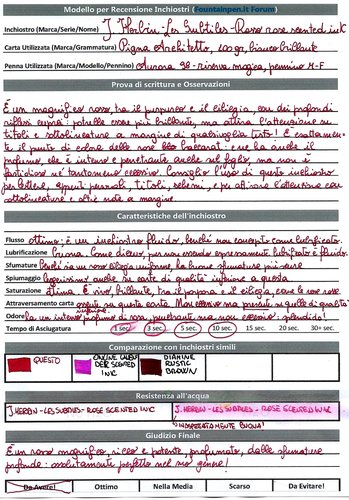 Modello per Recensione Inchiostri (Fountainpen.it Forum)
Inchiostro (Marca/Serie/Nome) J. Herbin - Les Subtiles - Rose rose scented ink
Carta Utilizzata (Marca/Grammatura) Pigna Architetto, 100 gr, bianco brillante
Penna Utilizzata (Marca/Modello/Pennino) Aurora 98 - riserva magica, pennino M-F
Prova di scrittura e Osservazioni
È un magnifico rosso, tra il purpureo e il ciliegia, con dei profondi
riflessi cupi: potrebbe essere più brillante, ma attira l'attenzione su
titoli e sottolineature a margine di qualsivoglia testo! È esattamente
il punto di colore delle rose baccarat: e ne ha anche il
profumo, che è intenso e penetrante anche sul foglio, ma non è
fastidioso né tantomeno eccessivo. Consiglio l'uso di questo inchiostro
per lettere, appunti personali, titoli, schemi, e per attirare l'attenzione con
sottolineature e altre note a margine.
Caratteristiche dell'inchiostro
Flusso ottimo: è un inchiostro fluido, benché non concepito come lubrificato
Lubrificazione buona. Come dicevo, pur non essendo espressamente lubrificato è fluido.
Sfumature benché sia un rosso ciliegia uniforme, ha buone sfumature più scure
Spiumaggio leggerissimo anche su carte di qualità inferiore a questa
Saturazione ottima. È vivo, brillante, tra il porpora e il ciliegia, come le rose rosse.
Attraversamento carta assente su questa carta. Non eccessivo ma presente su quelle di qualità inferiore.
Odore ha un intenso profumo di rosa, penetrante ma non eccessivo: splendido!
Tempo di Asciugatura 1 sec. 3 sec. 5 sec. 10 sec. 15 sec. 20 sec. 30+ sec.
Comparazione con inchiostri simili
QUESTO
SCENTED
INK
DIAMINE
RUSTIC
BROWN
Resistenza all'acqua
J. HERBIN - LES SUBTILES - ROSE SCENTED INK
J. HERBIN - LES SUBTILES - ROSE SCENTED INK
INASPETTATAMENTE BUONA!
Giudizio Finale
È un rosso magnifico, ricco e potente, profumato, dalle sfumature
profonde: assolutamente perfetto nel suo genere!
Da Avere! Ottimo Nella Media Scarso Da Evitare!